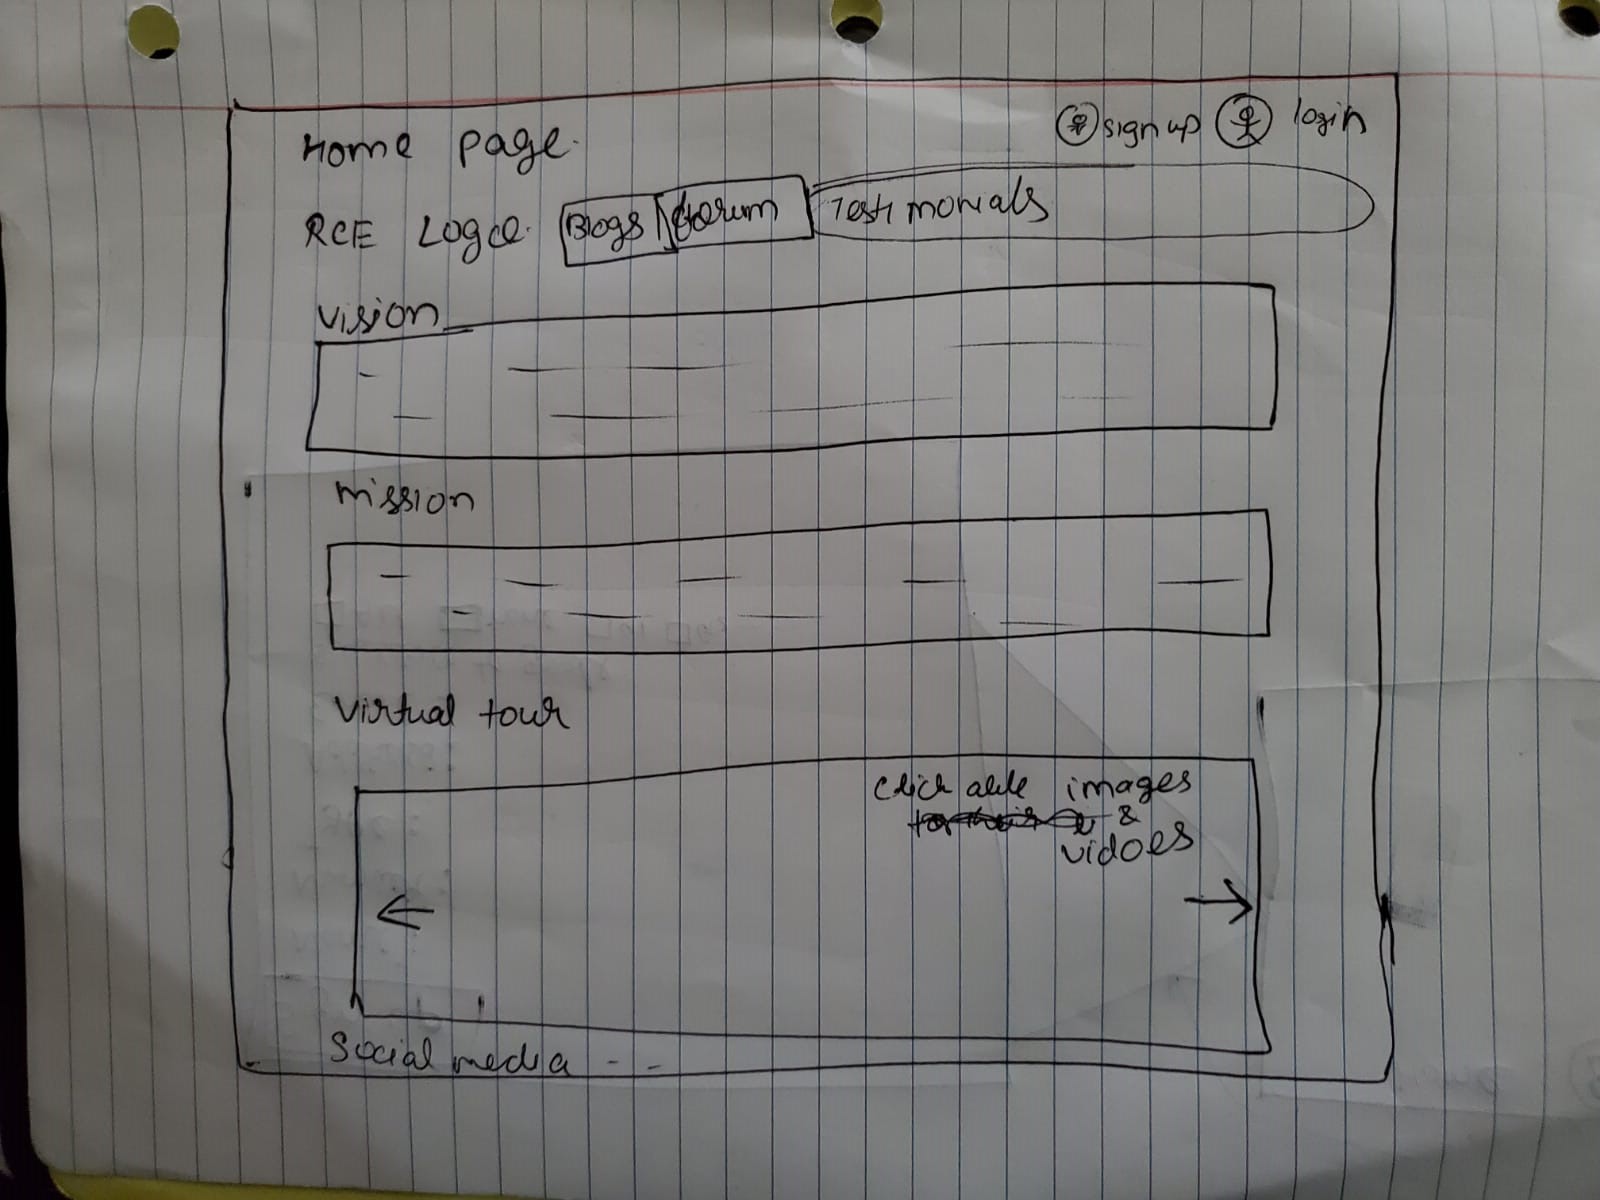 Home page.
sign up login
RCE Logo Blogs forum Testimonials
vision
mission
virtual tour
click able images
&
vidoes
social media - -